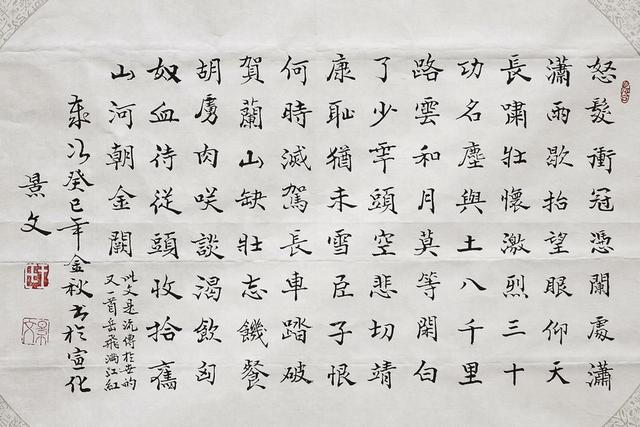 怒髮衝冠憑闌處瀟
瀟雨歇抬望眼仰天
長嘯壯懷激烈三十
功名塵與土八千里
路雲和月莫等閑白
了少年頭空悲切靖
康恥猶未雪臣子恨
何時滅駕長車踏破
賀蘭山缺壯志饑餐
胡虜肉笑談渴飲匈
奴血待從頭收拾舊
山河朝金闕
此文是流傳於世的
又一首岳飛滿江紅
歲次癸巳年金秋書於宣化
景文